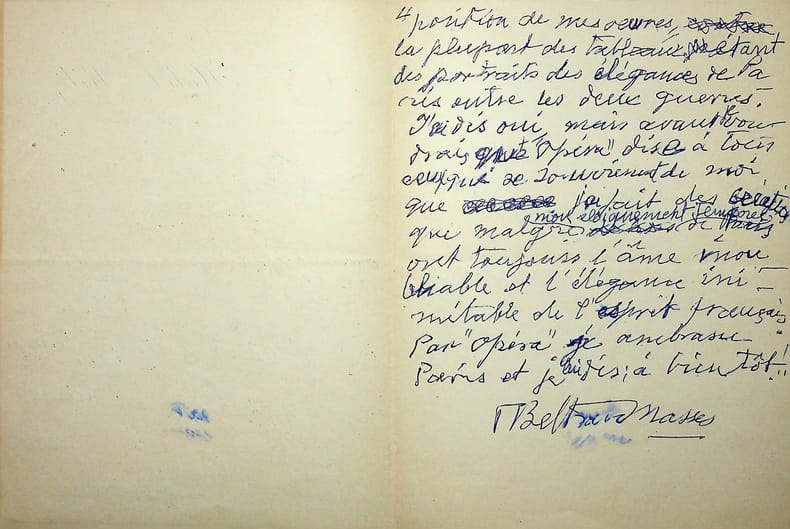 4
position de mes œuvres,
la plupart des tableaux, étant
des portraits des élégances de Pa
ris entre les deux guerres.
J'ai dis oui, mais avant je vou-
drais que "Opéra" dise à tous
ceux qui se souviennent de moi
que j'ai fait des
mon éloignement temporel
qui malgré de Paris
ont toujours l'âme inou
bliable et l'élégance ini-
mitable de l'esprit français
Par "Opéra" je ambrasse
Paris et je lui dis: à bientôt!!
Beltran Masses